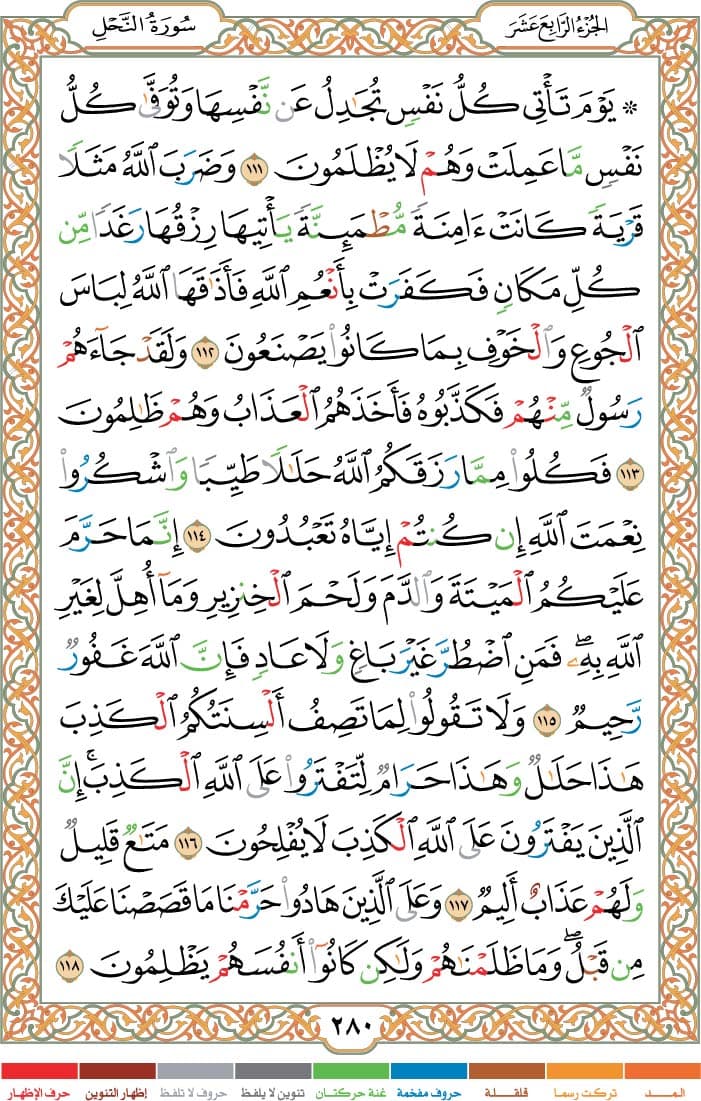 الجُزْءُ الرَّابِعَ عَشَرَ
سُورَةُ النَّحْلِ
۞ يَوْمَ تَأْتِي كُلُّ نَفْسٍ تُجَٰدِلُ عَن نَّفْسِهَا وَتُوَفَّىٰ كُلُّ
نَفْسٍ مَّا عَمِلَتْ وَهُمْ لَا يُظْلَمُونَ ١١١ وَضَرَبَ اللَّهُ مَثَلًا
قَرْيَةً كَانَتْ ءَامِنَةً مُّطْمَئِنَّةً يَأْتِيهَا رِزْقُهَا رَغَدًا مِّن
كُلِّ مَكَانٍ فَكَفَرَتْ بِأَنْعُمِ اللَّهِ فَأَذَٰقَهَا اللَّهُ لِبَاسَ
الْجُوعِ وَالْخَوْفِ بِمَا كَانُوا يَصْنَعُونَ ١١٢ وَلَقَدْ جَآءَهُمْ
رَسُولٌ مِّنْهُمْ فَكَذَّبُوهُ فَأَخَذَهُمُ الْعَذَابُ وَهُمْ ظَٰلِمُونَ
١١٣ فَكُلُوا مِمَّا رَزَقَكُمُ اللَّهُ حَلَٰلًا طَيِّبًا وَاشْكُرُوا
نِعْمَتَ اللَّهِ إِن كُنتُمْ إِيَّاهُ تَعْبُدُونَ ١١٤ إِنَّمَا حَرَّمَ
عَلَيْكُمُ الْمَيْتَةَ وَالدَّمَ وَلَحْمَ الْخِنزِيرِ وَمَآ أُهِلَّ لِغَيْرِ
اللَّهِ بِهِۦۖ فَمَنِ اضْطُرَّ غَيْرَ بَاغٍ وَلَا عَادٍ فَإِنَّ اللَّهَ غَفُورٌ
رَّحِيمٌ ١١٥ وَلَا تَقُولُوا لِمَا تَصِفُ أَلْسِنَتُكُمُ الْكَذِبَ
هَٰذَا حَلَٰلٌ وَهَٰذَا حَرَامٌ لِّتَفْتَرُوا عَلَى اللَّهِ الْكَذِبَۚ إِنَّ
الَّذِينَ يَفْتَرُونَ عَلَى اللَّهِ الْكَذِبَ لَا يُفْلِحُونَ ١١٦ مَتَٰعٌ قَلِيلٌ
وَلَهُمْ عَذَابٌ أَلِيمٌ ١١٧ وَعَلَى الَّذِينَ هَادُوا حَرَّمْنَا مَا قَصَصْنَا عَلَيْكَ
مِن قَبْلُۖ وَمَا ظَلَمْنَٰهُمْ وَلَٰكِن كَانُوٓا أَنفُسَهُمْ يَظْلِمُونَ ١١٨
٢٨٠
المـــد تركت رسما قلقـلة حروف مفخمة غنة حركتان تنوين لا يلفظ حروف لا تلفظ إظهار التنوين حرف الإظهار